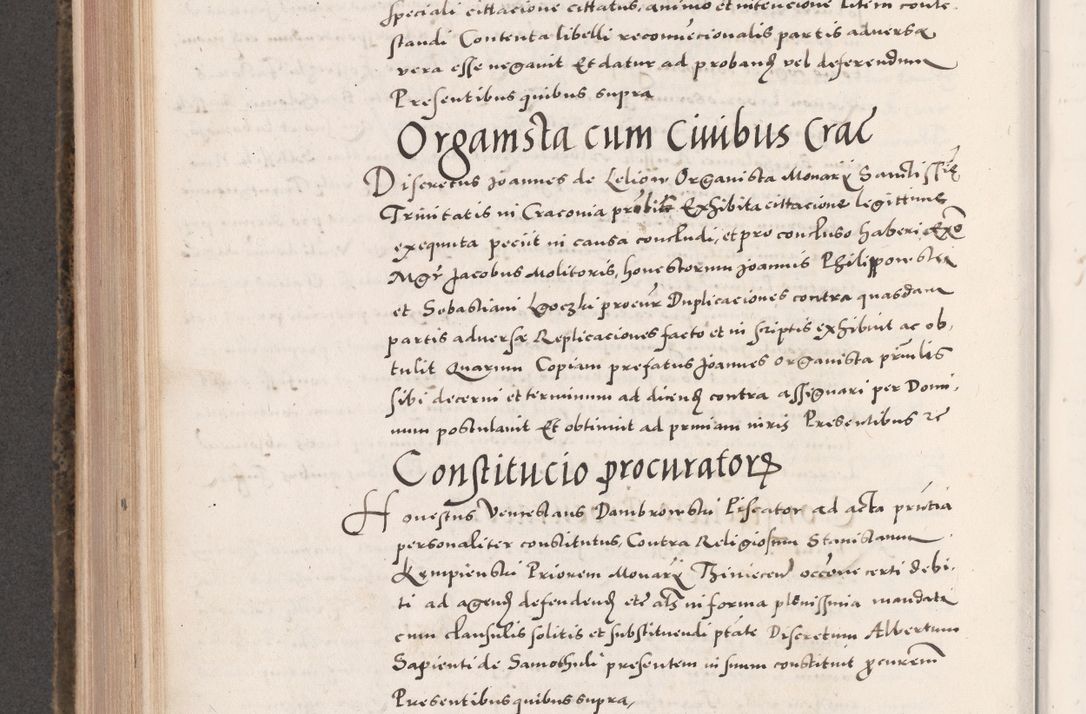 speciali cittacione cittatus, animo et intencione litem conte
standi Contenta libelli reconvecionalis partis adversæ
vera esse negavit Et datur ad proband vel deferendum
Presentibus quibus supra
Organista cum Civibus Crac
Discretus Joannes de Leliow Organista Monarij Sanctissiæ
Trinitatis in Craconia Exhibita cittacione legittime
exequuta peciit in causa concludi, et pro concluso haberi
Mgr Jacobus Molitoris, honestorum Joannis Philippowski
et Sebastiani procur Duplicaciones contra quasdam
partis adversæ Replicaciones facto et in scriptis exhibuit ac ob,
tulit Quarum Copiam prefatus Joannes organista
sibi decerni et terminum ad dicend contra assignari per Domi,
num postulavit Et obtinuit ad primam iuris Presentibus rc
Constitucio procuratorꝝ
Honestus Venceslaus Dambrowski Piscator ad acta prntia
personaliter constitutus, Contra Religiosum Stanislaum
Kempienski Priorem Monarij Thinecen occone certi debi,
ti ad agend defendend etc als in forma plenissima mandati
cum clausulis solitis et substituendi ptate Discretum Albertum
Sapienti de Samothuli presentem in suum constituit procurem
Presentibus quibus supra,